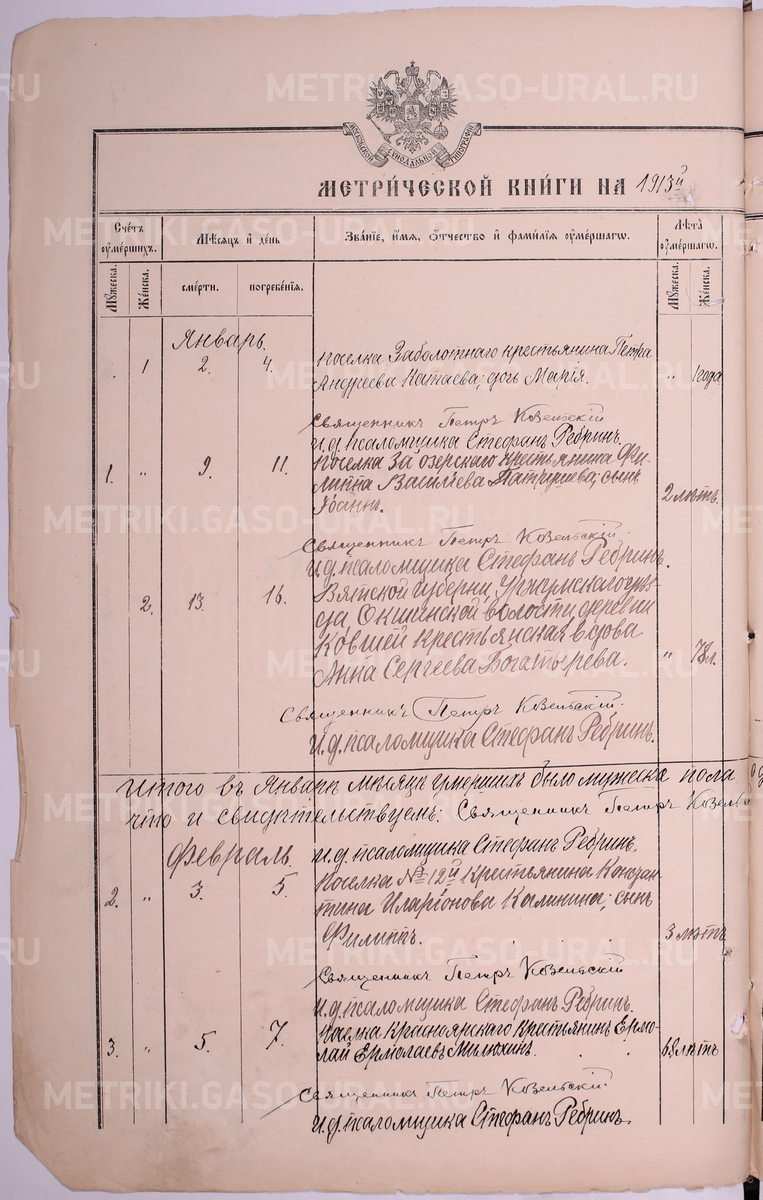 МОСКОВСКОЙ СѴНОДАЛЬНОЙ ТИПОГРАФІИ
МЕТРИ́ЧЕСКОЙ КНИ́ГИ НА 1913й
Счетъ ѹмершихъ.
Мѣсяцъ и день
Званіе, имя, отчество и фамилія ѹмершагѡ.
Лѣта ѹмершагѡ.
Мѹжеска.
Женска.
смерти.
погребенія.
Мѹжеска.
Женска.
Январь.
„ 1 2. 4. поселка Заболотнаго крестьянина Петра
Андреева Катаева; дочь Марія. „ 1 года
Священникъ Петръ Козельскій
И.д. псаломщика Стефанъ Ребринъ.
1. „ 9. 11. поселка За озерскаго крестьянина Фи-
липпа Васильева Патрушева; сынъ
Іоаннъ. 2 лѣтъ.
Священникъ Петръ Козельскій
И.д. псаломщика Стефанъ Ребринъ.
„ 2. 13. 16. Вятской губерни, Уржумскаго уѣз-
да, волости деревни
крестьянская вдова
Анна Сергеева Богатырева. „ 78 л.
Священникъ Петръ Козельскій.
И.д. псаломщика Стефанъ Ребринъ.
Итого въ Январѣ мѣсяцѣ умершихъ было мужеска пола
что и свидѣтельствуемъ: Священникъ Петръ Козель
Февраль. И.д. псаломщика Стефанъ Ребринъ.
2. „ 3. 5. поселка № 12й крестьянина Констан-
тина Иларіонова Калинина; сынъ
Филиппъ. 3 лѣтъ
Священникъ Петръ Козельскій
И.д. псаломщика Стефанъ Ребринъ.
3. „ 5. 7. поселка Красноярскаго крестьянинъ Ермо-
лай Ермолаевъ Милюхинъ. 68 лѣтъ
Священникъ Петръ Козельскій
И.д. псаломщика Стефанъ Ребринъ.
METRIKI.GASO-URAL.RU